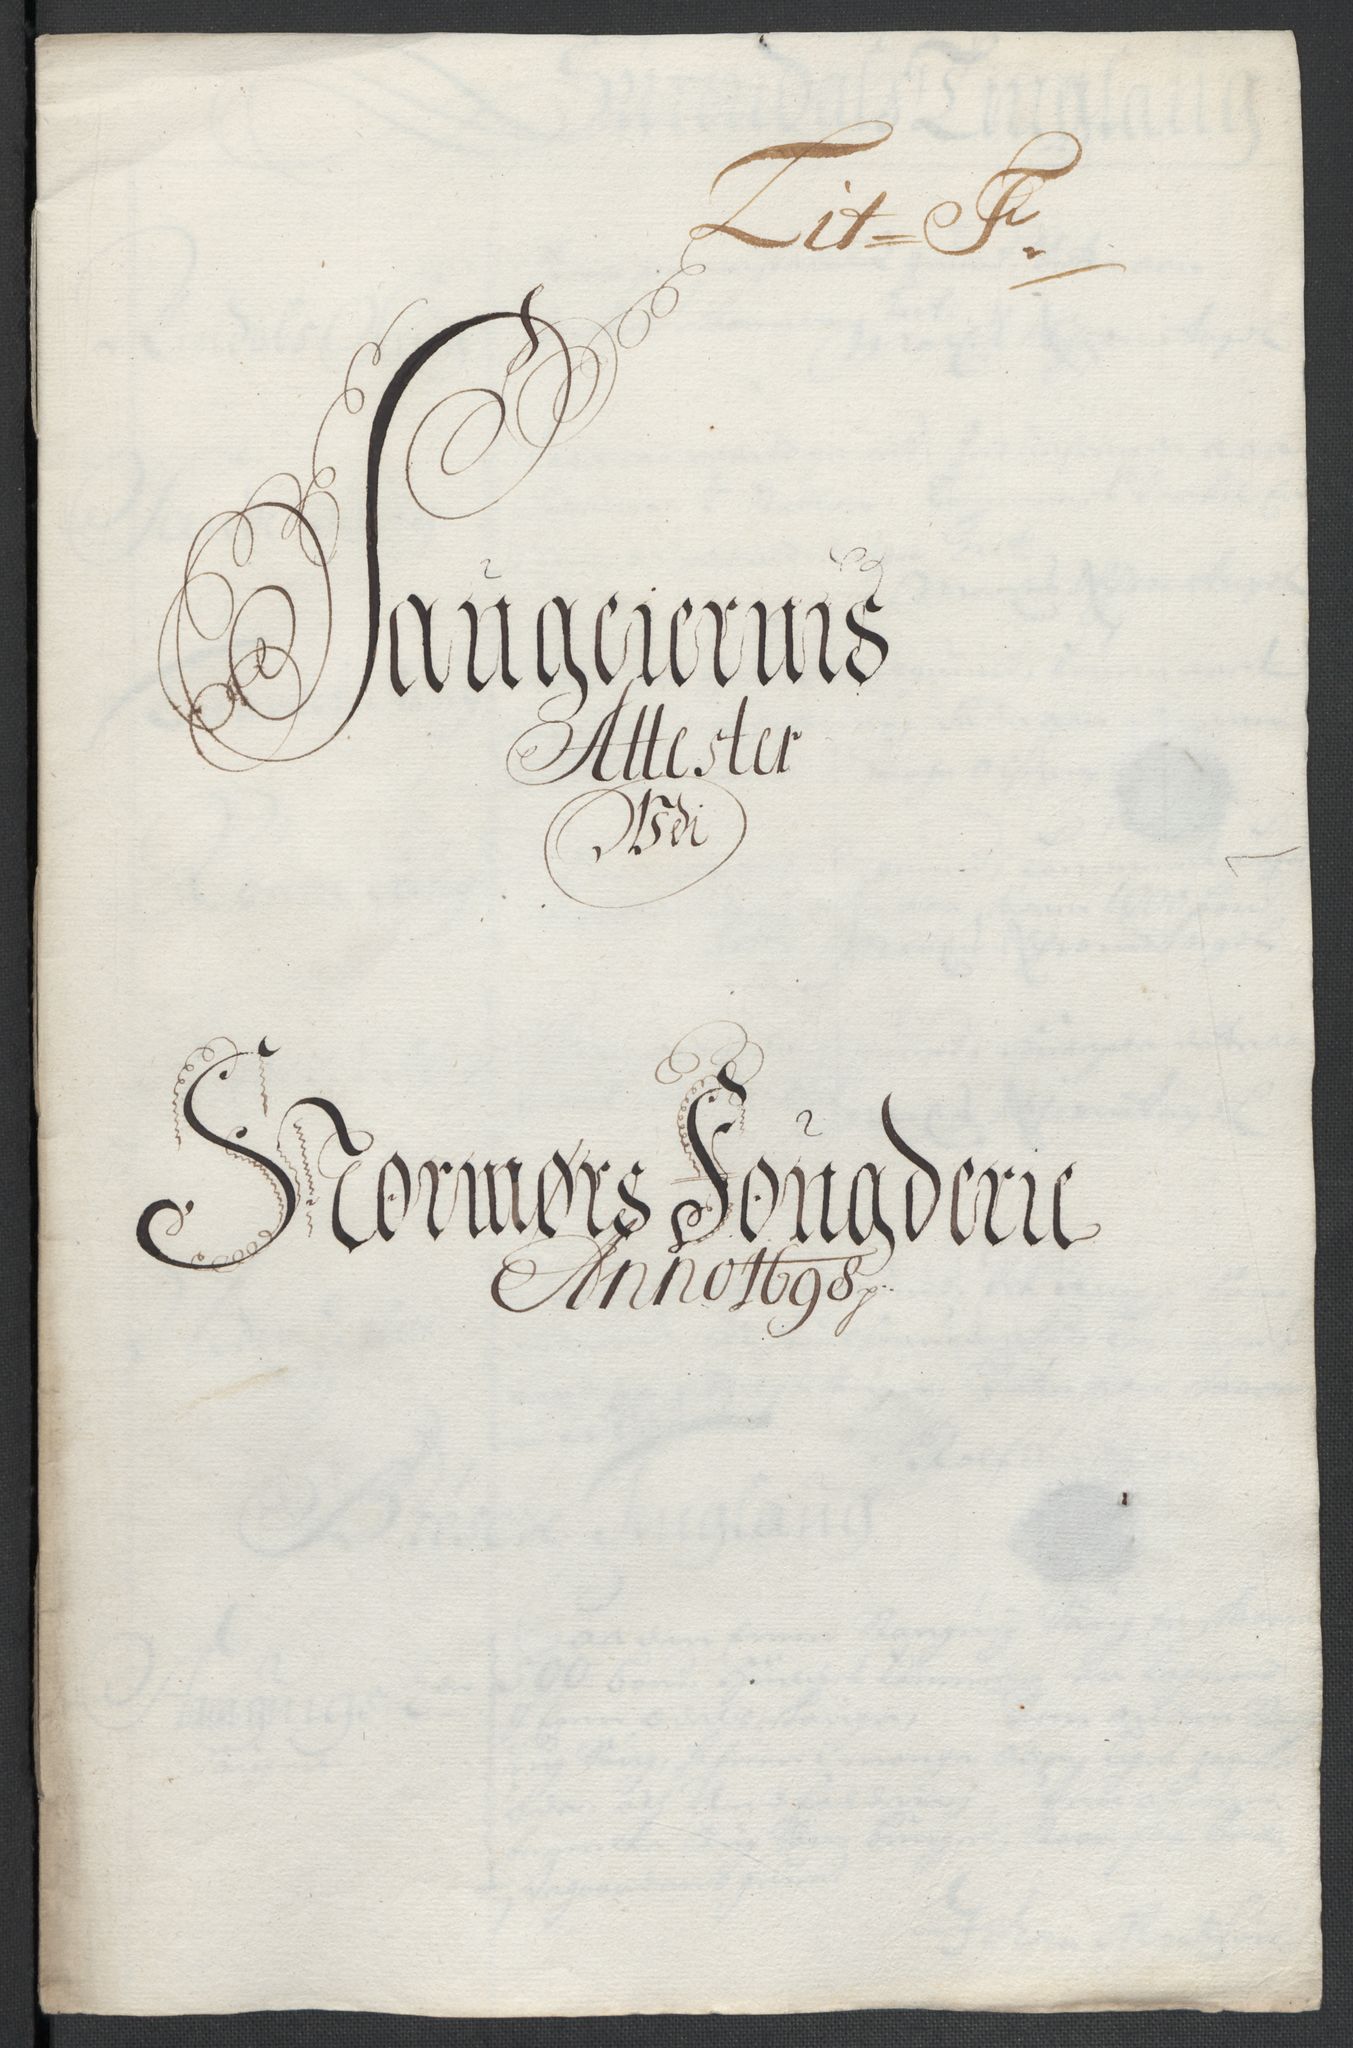 Lit= F.
Saugeiernis
Attester
Udi
Normørs Fougderie
Anno 1698